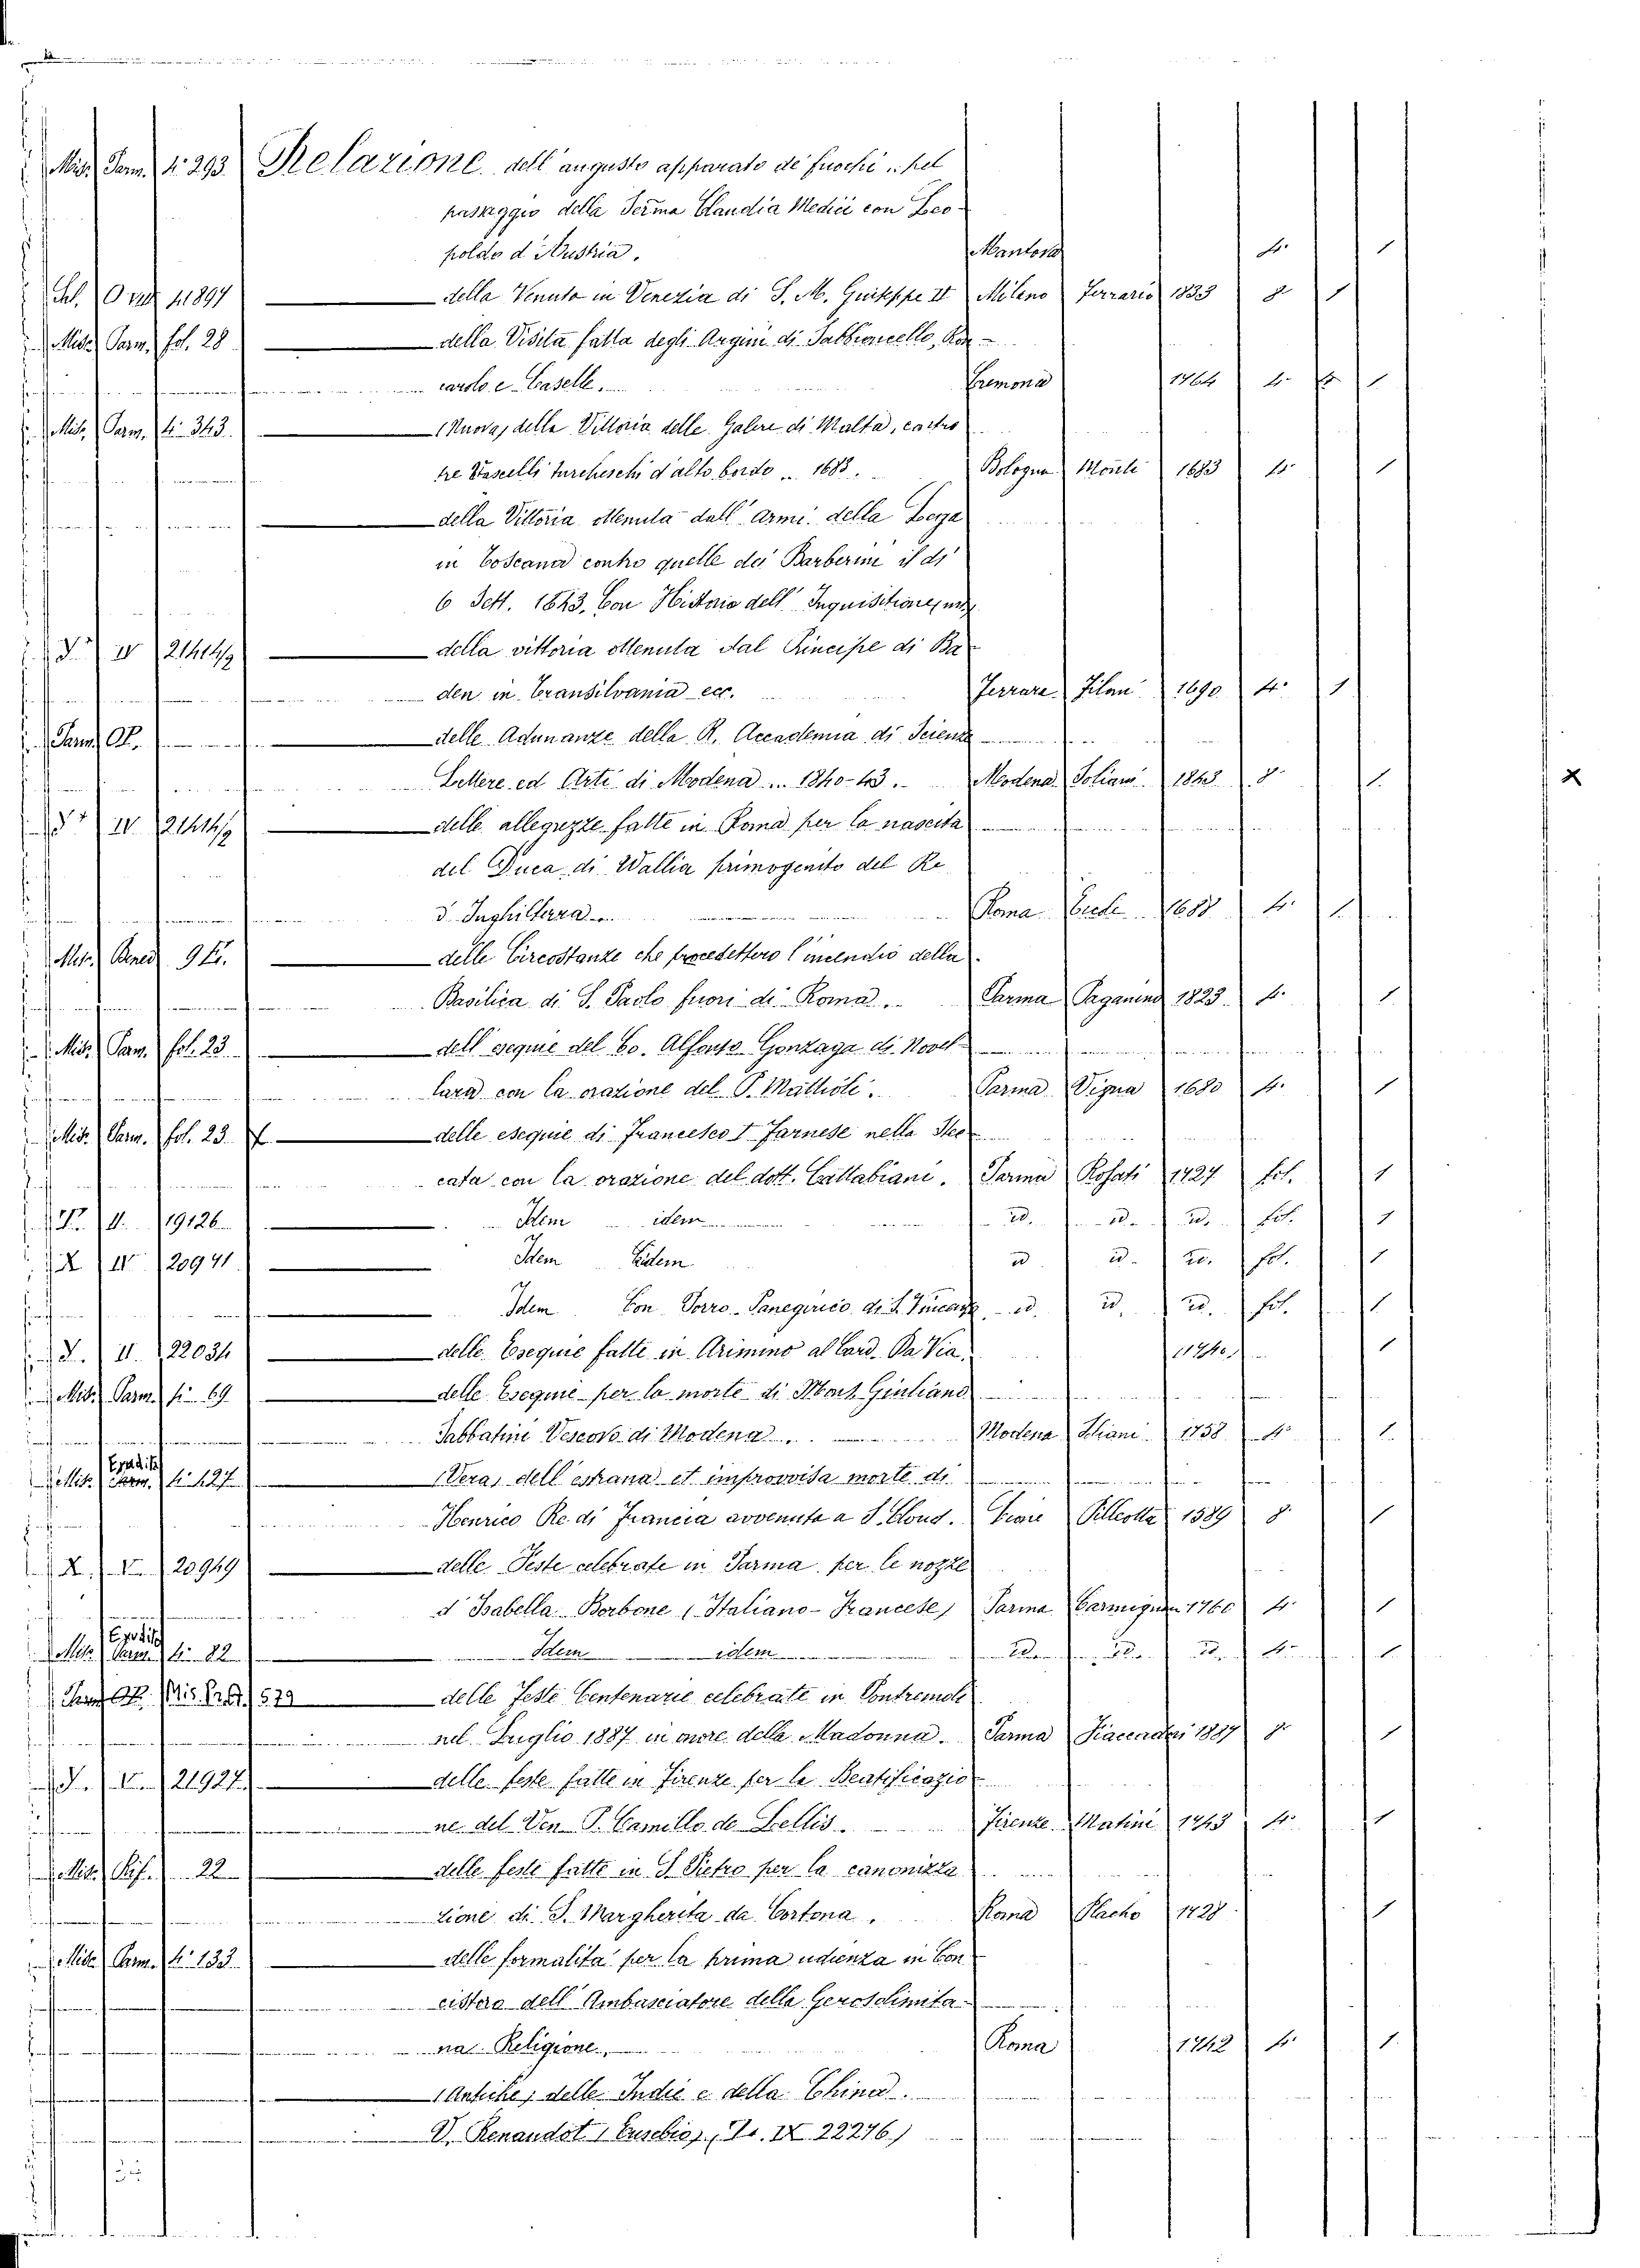 Mis. Parm. 4.° 293. Relazione dell'augusto apparato de fuochi .. pel
passaggio della Ser.ma Claudia Medici con Leo-
poldo d'Austria. Mantova 4.° 1
Sal. O 41894 della Venuta in Venezia di S. M. Giuseppe II Milano Ferrario 1833 8.° 1
Misc. Parm. fol. 28 della Visita fatta degli Argini di Sabbioncello, Ron-
carolo e Caselle. Cremona 1764 4.° 1
Misc. Parm. 4.° 343. (Nuova) della Vittoria delle Galere di Malta, contro
tre Vascelli turcheschi d'alto bordo .. 1683. Bologna Monti 1683 4.° 1
della Vittoria ottenuta dall'armi della Lega
in Toscana contro quelle dei Barberini il dì
6 Sett. 1643. Con Historia dell'Inquisitione
S. IV 21414/9 della vittoria ottenuta dal Principe di Ba-
den in Transilvania ecc. Ferrara Filoni 1690 4.° 1
Parm. Op. delle Adunanze della R. Accademia di Scienze
Lettere ed Arti di Modena ... 1840-43. Modena Soliani 1843 8.° 1. x
S. IV 21414/9 delle allegrezze fatte in Roma per la nascita
del Duca di Wallia primogenito del Re
d'Inghilterra Roma 1688 4.° 1
Misc. Bened. 9 4.° delle Circostanze che precedettero l'incendio della
Basilica di S. Paolo fuori di Roma. Parma Paganino 1823. 4.° 1
Misc. Parm. fol. 23 dell'esequie del Co. Alfonso Gonzaga di Novel-
lara con la orazione del P. Mattioli. Parma Vigna 1680 4.° 1
Misc. Parm. fol. 23 delle esequie di Francesco I Farnese nella Stec-
cata con la orazione del dott. Cattabiani. Parma Rosati 1727 fol. 1
II. 19126 Idem idem id. id. id. fol. 1
X IV 20941 Idem Eidem id id. id. fol. 1
Idem Con Torro - Panegirico di S. id. id. id. fol. 1
S. II. 22034 delle Esequie fatte in Arimino al Card. Da Via. (1740.) 1
Misc. Parm. 4.° 69 delle Esequie per la morte di Mons. Giuliano
Sabbatini Vescovo di Modena Modena Soliani 1758 4.° 1.
Misc. Erudite 4.° 127 (Vera) dell'estrana et improvvisa morte di
Henrico Re di Francia avvenuta a S. Cloud. Lione Pillotta 1589 8.° 1
X. V. 20949 delle Feste celebrate in Parma per le nozze
d'Isabella Borbone (Italiano-Francese) Parma Carmignani 1760 4.° 1
Misc. Erudite 4.° 82 Idem idem id. id. id. 4.° 1
Parm. Op. Mis. 579 delle feste Centenarie celebrate in Pontremoli
nel Luglio 1887 in onore della Madonna. Parma Fiaccadori 1887 8.° 1
S. V. 21927. delle feste fatte in Firenze per la Beatificazio-
ne del Ven. P. Camillo de Lellis. Firenze Martini 1743 4.° 1
Misc. Rif. 22 delle feste fatte in S. Pietro per la canonizza-
zione di S. Margherita da Cortona. Roma Placho 1728 1
Misc. Parm. 4.° 133. delle formalità per la prima udienza in Con-
cistoro dell'Ambasciatore della Gerosolimita-
na Religione. Roma 1742 4.° 1.
(Antiche) delle Indie e della China.
V. Renaudot (Eusebio), (Is. IX 22276)